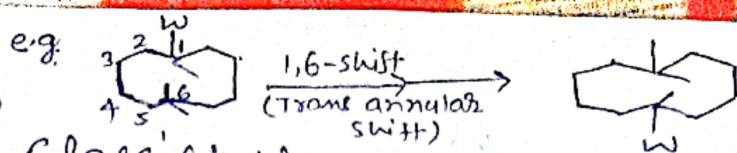 e.g.
W
3 2 1
4 5 6
1,6-shift
(Trans annular
shift)
W